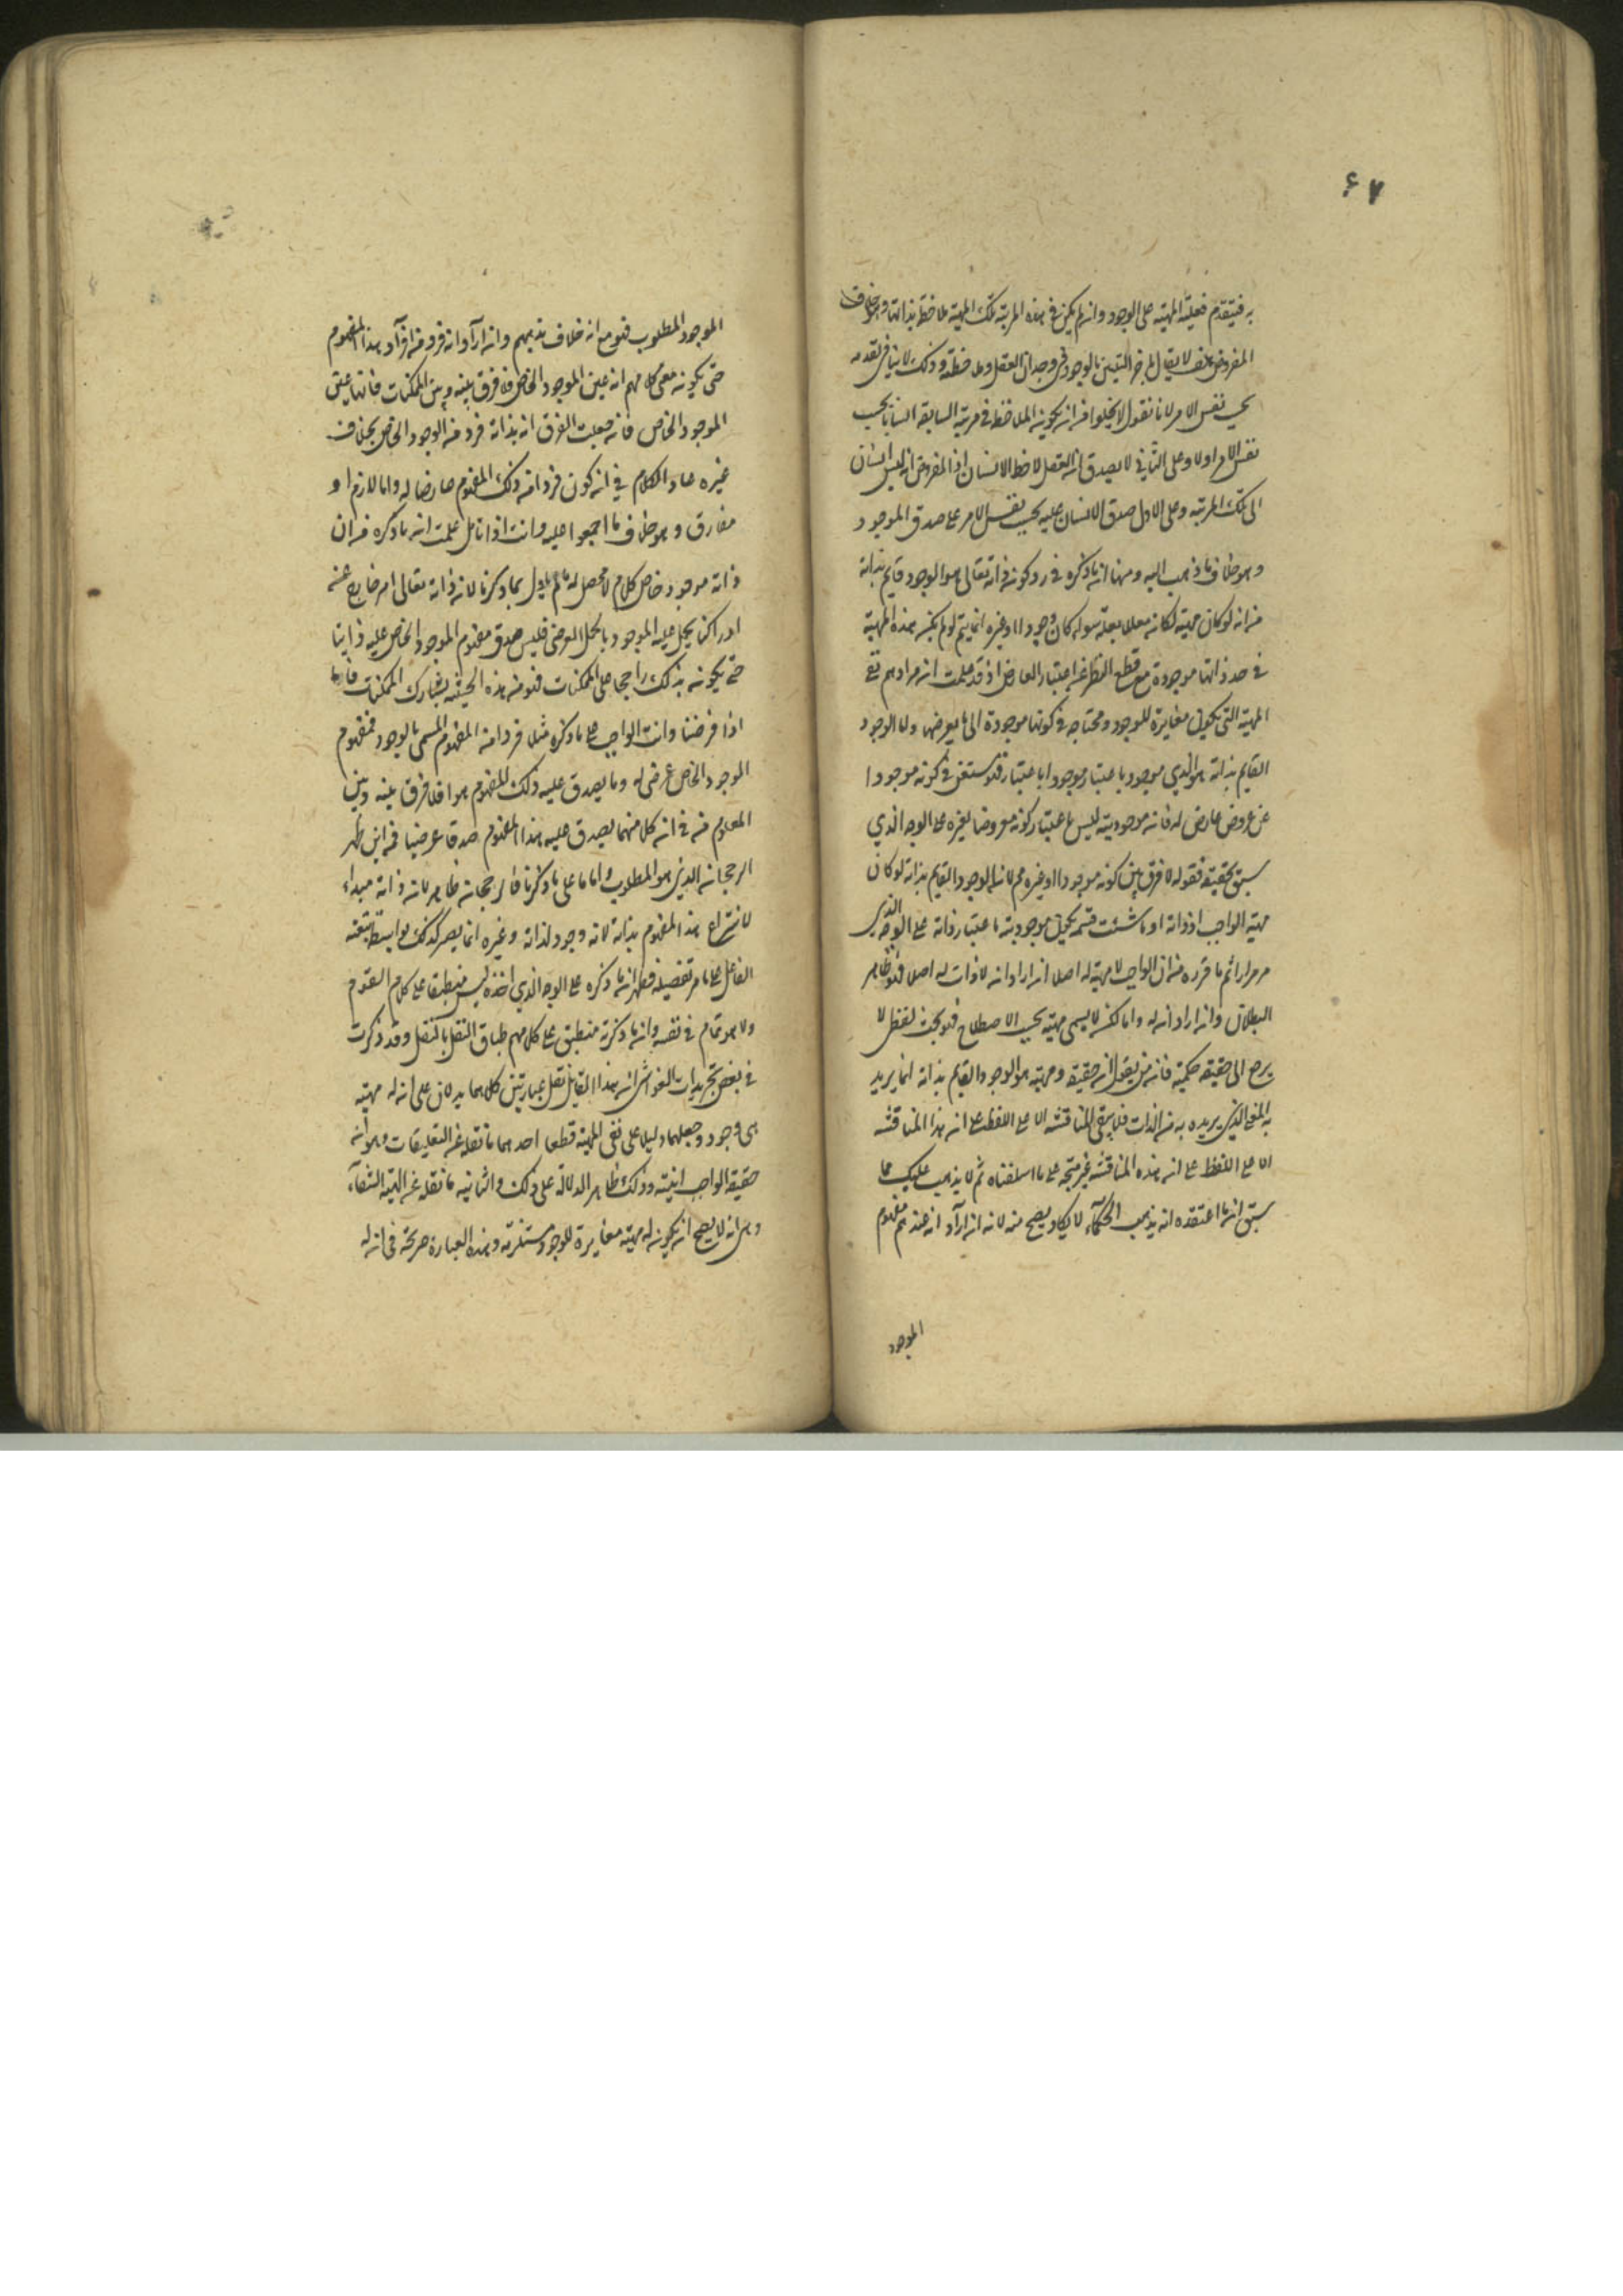 ۶۷
به فيتقدم فعلية المهية على الوجود وان لم يكن في هذه المرتبة تلك المهية ملاحظة بذاتها وهو خلاف
المفروض هف لا يقال المؤخر التعين بالوجود في وجدان العقل وملاحظته وذلك لا ينافي تقدمه
بحسب نفس الامر لانا نقول لا يخلوا من ان يكون الملاحظ في مرتبة السابقة انسانا بحسب
نفس الامر اولا وعلى الثاني لا يصدق ان العقل لاحظ الانسان اذ المفروض انه ليس انسان
الى تلك المرتبة وعلى الاول صدق الانسان عليه بحسب نفس الامر على صدق الموجود
وهو خلاف ما ذهب اليه ومنها ان ما ذكره في رد كون ذاته تعالى هو الوجود قايم بذاته
من انه لو كان مهية لكانه معللا بعلة سواء كان وجودا او غيره انما يتم لو لم يكن هذه المهية
في حد ذاتها موجودة مع قطع النظر عن اعتبار العارض اذ قد علمت ان مرادهم نفي
المهية التي يكون مغايرة للوجود ومحتاجه في كونها موجودة الى ما يعرضها واما الوجود
القايم بذاته هو الذي موجود باعتبار وموجود باعتبار فلا يستغن في كونه موجودا
عن عروض عارض له فانه موجوديته ليس باعتبار كونه معروضا لغيره على الوجه الذي
سبق تحقيقه فقوله لا فرق بين كونه موجودا او غيره مم لانه الوجود القايم بذاته لو كان
مهية الواجب او ذاته او ما شئت فسمه يكون موجوديته باعتبار ذاته على الوجه الذي
مر مرارا ثم ما قرره من ان الواجب لا مهية له اصلا ان اراد انه لا ذات له اصلا فهو ظاهر
البطلان وان اراد انه له ذات لكنه لا يسمى مهية بحسب الاصطلاح فهو بحث لفظي لا
يرجع الى حقيقة حكمية فانه من يقول انه حقيقة ومهيته هو الوجود القايم بذاته انما يريد
به المعنى الذي يريده به من الذات فلا يبقى المناقشة الا على اللفظ على ان هذا المناقشة
الا على اللفظ على ان هذه المناقشة غير متجه على ما اسلفناه ثم لا يذهب عليك مما
سبق ان ما اعتقده انه مذهب الحكماء لا يكاد يصح منه لانه ان اراد انه عندهم مفهوم
الموجود
الموجود المطلوب فهو مع انه خلاف مذهبهم وان اراد انه فرد من افراد هذا المفهوم
حتى يكون معنى كلامهم انه عين الموجود الخاص فلا فرق بينه وبين الممكنات فانها عين
الموجود الخاص فانه جعلت الفرق انه بذاته فرد من الوجود الخاص بخلاف
غيره عاد الكلام في انه كون فردا من ذلك المفهوم عارضا له واما لازم او
مفارق وهو خلاف ما اجمعوا عليه وانت اذا تامل علمت انه ما ذكره من ان
ذاته موجود خاص كلام لا محصل له ما لم ياول بما ذكرنا لانه ذاته تعالى امر خارج عن
ادراكنا يحمل عليه الموجود بالحمل العرضي فليس صدق مفهوم الموجود الخاص عليه ذاتيا
حتى يكون بذلك راجحا على الممكنات فهو من هذه الحيثية يشارك الممكنات فانها
اذا فرضنا وانت الواجب على ما ذكره مثلا فردا من المفهوم المسمى بالوجود فمفهوم
الموجود الخاص عرضي له وما يصدق عليه ذلك المفهوم هو افلا فرق بينه وبين
المعلوم منه في انه كلا منهما يصدق عليه هذا المفهوم صدقا عرضيا فمن اين ظهر
الرجحان الذي هو المطلوب واما ما على ما ذكرنا فالرجحان ظاهر لان ذاته مبداء
لانتزاع هذا المفهوم بذاته لانه وجود لذاته وغيره انما يصير كذلك بواسطة
الفاعل على ما مر تفصيله فظهر ان ما ذكره على الوجه الذي اخذه ليس منطبقا على كلام القوم
ولا هو تمام في نفسه وان ما ذكرته منطبق على كلامهم طباق النقل بالنقل وقد ذكرت
في بعض تجريدات الغواشي ان هذا القايل نقل عبارتين كلاهما يدلان على انه له مهية
هي وجود وجعلهما دليلا على نفي المهية قطعا احدهما ما نقله عن التعليقات وهو انه
حقيقة الواجب انيته وذلك ظاهر الدلالة على ذلك والثانيه ما نقله عن الهية الشفاء
وهو انه لا يصح انه يكون له مهية مغايرة للوجود مستلزمه وهذه العبارة صريحة في ان له